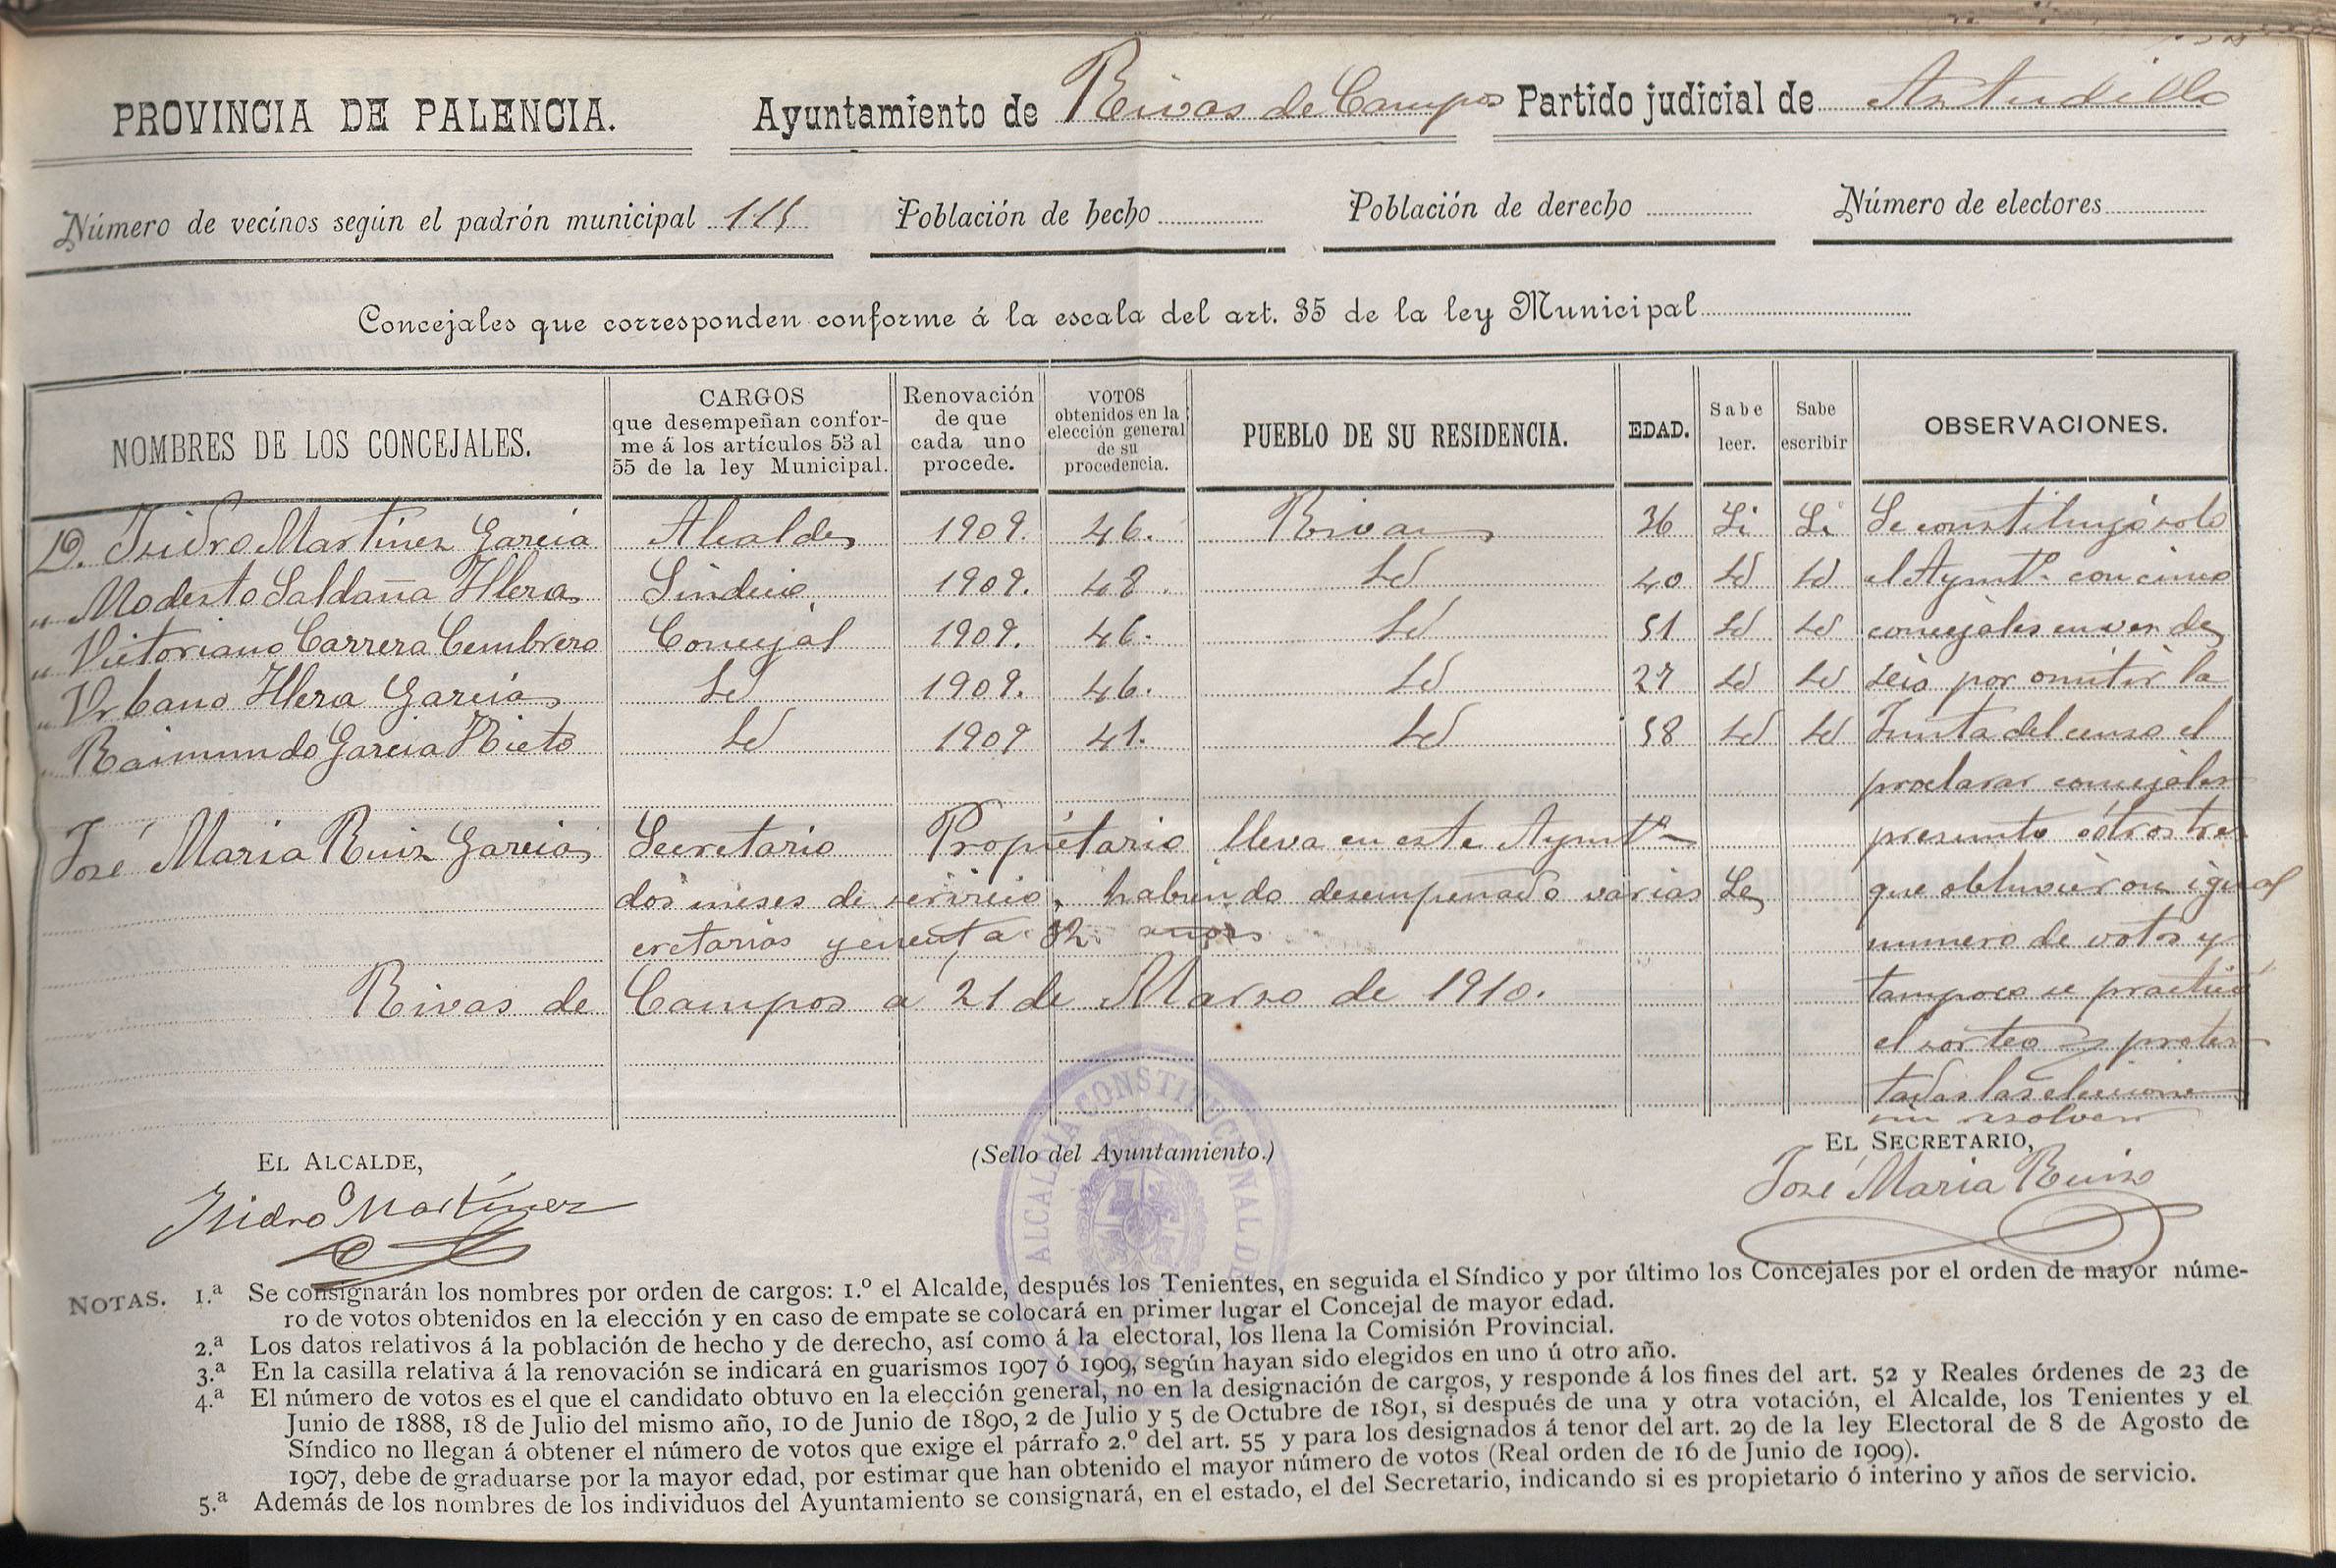 PROVINCIA DE PALENCIA. Ayuntamiento de Rivas de Campos Partido judicial de Astudillo
Número de vecinos según el padrón municipal 115 Población de hecho Población de derecho Número de electores
Concejales que corresponden conforme á la escala del art. 35 de la ley Municipal
NOMBRES DE LOS CONCEJALES.
CARGOS
que desempeñan confor-
me á los artículos 53 al
55 de la ley Municipal.
Renovación
de que
cada uno
procede.
VOTOS
obtenidos en la
elección general
de su
procedencia.
PUEBLO DE SU RESIDENCIA.
EDAD.
Sabe
leer.
Sabe
escribir
OBSERVACIONES.
D. Isidro Martinez Garcia Alcalde 1909. 46. Rivas 36 Si Si Se constituyó solo
" Modesto Saldaña Illera Sindico 1909. 48. Id 40 Id Id el Aymtº con cinco
" Victoriano Carrera Cembrero Concejal 1909. 46. Id 51 Id Id concejales en vez de
" Urbano Illera Garcia Id 1909. 46. Id 27 Id Id seis por omitir la
" Raimundo Garcia Nieto Id 1909 41. Id 58 Id Id Junta del censo el
proclamar concejales
José Maria Ruiz Garcia Secretario Propietario lleva en este Aymtº
dos meses de servicio, habiendo desempeñado varias Se
cretarias y cuenta 32 años
que obtuvieron igual
numero de votos y
Rivas de Campos a 21 de Marzo de 1910.
tampoco se practicó
el sorteo y protes
tadas las elecciones
sin resolver
EL ALCALDE,
Isidro Martínez
(Sello del Ayuntamiento.)
ALCALDIA CONSTITUCIONAL DE
EL SECRETARIO,
José Maria Ruiz
NOTAS. 1.ª Se consignarán los nombres por orden de cargos: 1.º el Alcalde, después los Tenientes, en seguida el Síndico y por último los Concejales por el orden de mayor núme-
ro de votos obtenidos en la elección y en caso de empate se colocará en primer lugar el Concejal de mayor edad.
2.ª Los datos relativos á la población de hecho y de derecho, así como á la electoral, los llena la Comisión Provincial.
3.ª En la casilla relativa á la renovación se indicará en guarismos 1907 ó 1909, según hayan sido elegidos en uno ú otro año.
4.ª El número de votos es el que el candidato obtuvo en la elección general, no en la designación de cargos, y responde á los fines del art. 52 y Reales órdenes de 23 de
Junio de 1888, 18 de Julio del mismo año, 10 de Junio de 1890, 2 de Julio y 5 de Octubre de 1891, si después de una y otra votación, el Alcalde, los Tenientes y el
Síndico no llegan á obtener el número de votos que exige el párrafo 2.º del art. 55 y para los designados á tenor del art. 29 de la ley Electoral de 8 de Agosto de
1907, debe de graduarse por la mayor edad, por estimar que han obtenido el mayor número de votos (Real orden de 16 de Junio de 1909).
5.ª Además de los nombres de los individuos del Ayuntamiento se consignará, en el estado, el del Secretario, indicando si es propietario ó interino y años de servicio.